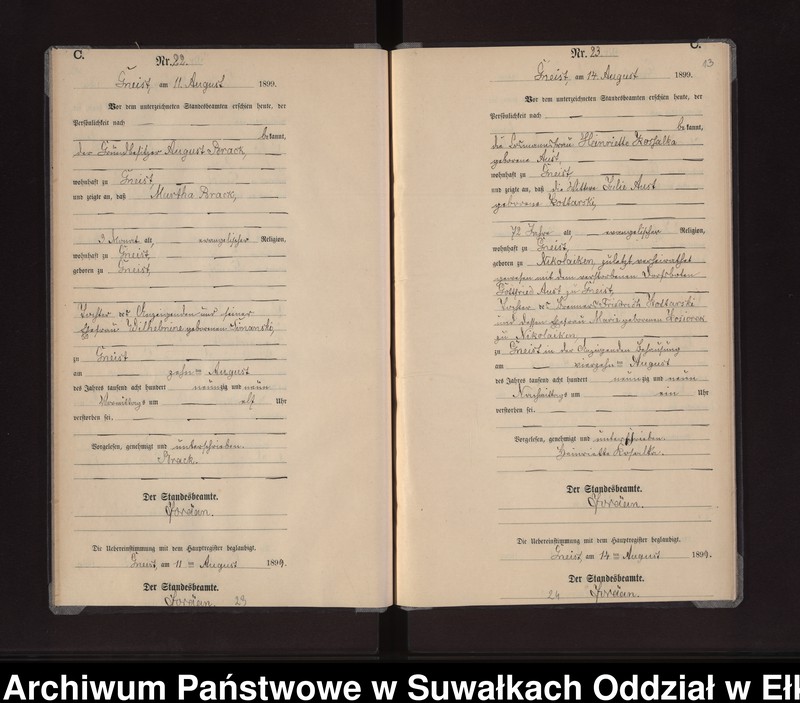 C.
Nr. 22.
Gneist, am 11. August 1899.
Vor dem unterzeichneten Standesbeamten erschien heute, der
Persönlichkeit nach
bekannt,
der Grundbesitzer August Brack,
wohnhaft zu Gneist,
und zeigte an, daß Martha Brack,
3 Monat alt, evangelischer Religion,
wohnhaft zu Gneist,
geboren zu Gneist
Tochter des Anzeigenden und seiner
Ehefrau Wilhelmine geborenen
zu Gneist
am zehn ten August
des Jahres tausend acht hundert neunzig und neun
Vormittags um elf Uhr
verstorben sei.
Vorgelesen, genehmigt und unterschrieben.
Brack.
Der Standesbeamte.
Die Uebereinstimmung mit dem Hauptregister beglaubigt.
Gneist, am 11 ten August 1899.
Der Standesbeamte.
23
C.
13
Nr. 23
Gneist, am 14. August 1899.
Vor dem unterzeichneten Standesbeamten erschien heute, der
Persönlichkeit nach
bekannt,
die Losmannsfrau Heinriette Kossalka
geborene Aust,
wohnhaft zu Gneist,
und zeigte an, daß die Wittwe Julie Aust
geborene
72 Jahre alt, evangelischer Religion,
wohnhaft zu Gneist,
geboren zu Nikolaiken zuletzt verheirathet
gewesen mit dem verstorbenen
Gottfried Aust zu Gneist,
Tochter des Friedrich
und dessen Ehefrau Marie geborenen
zu Nikolaiken
zu Gneist in der Anzeigenden Behausung
am vierzehn ten August
des Jahres tausend acht hundert neunzig und neun
Nachmittags um ein Uhr
verstorben sei.
Vorgelesen, genehmigt und unterschrieben.
Heinriette Kossalka.
Der Standesbeamte.
Die Uebereinstimmung mit dem Hauptregister beglaubigt.
Gneist, am 14 ten August 1899.
Der Standesbeamte.
24
Archiwum Państwowe w Suwałkach Oddział w Ełk